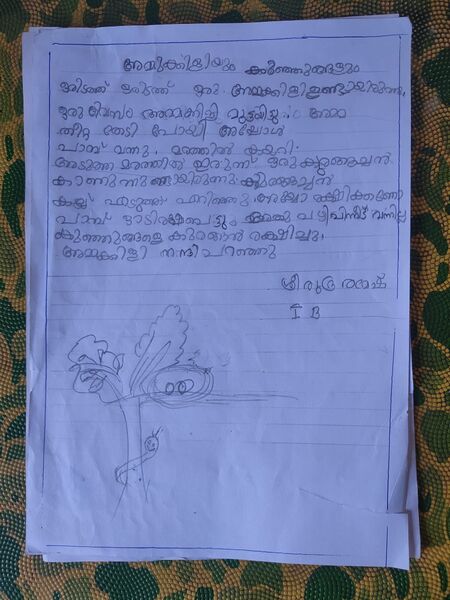 അമ്മക്കിളിയും കുഞ്ഞുങ്ങളും
ഒരിടത്ത് ഒരിടത്ത് ഒരു അമ്മക്കിളി ഉണ്ടായിരുന്നു.
ഒരു ദിവസം അമ്മക്കിളി മുട്ടയിട്ടു. അമ്മ
തീറ്റ തേടി പോയി അപ്പോൾ
പാമ്പ് വന്നു. മരത്തിൽ കയറി.
അടുത്ത മരത്തിൽ ഇരുന്ന് ഒരു കുരങ്ങച്ചൻ
കാണുന്നുണ്ടായിരുന്നു. കുരങ്ങച്ചൻ
കല്ല് എടുത്ത് എറിഞ്ഞു. അയ്യോ രക്ഷിക്കണേ
പാമ്പ് ഓടിരക്ഷപെട്ടു. പിന്നീട് വന്നില്ല
കുഞ്ഞുങ്ങളെ കുരങ്ങൻ രക്ഷിച്ചു.
അമ്മക്കിളി നന്ദി പറഞ്ഞു
ശ്രീരുദ്ര രമേഷ്
I B